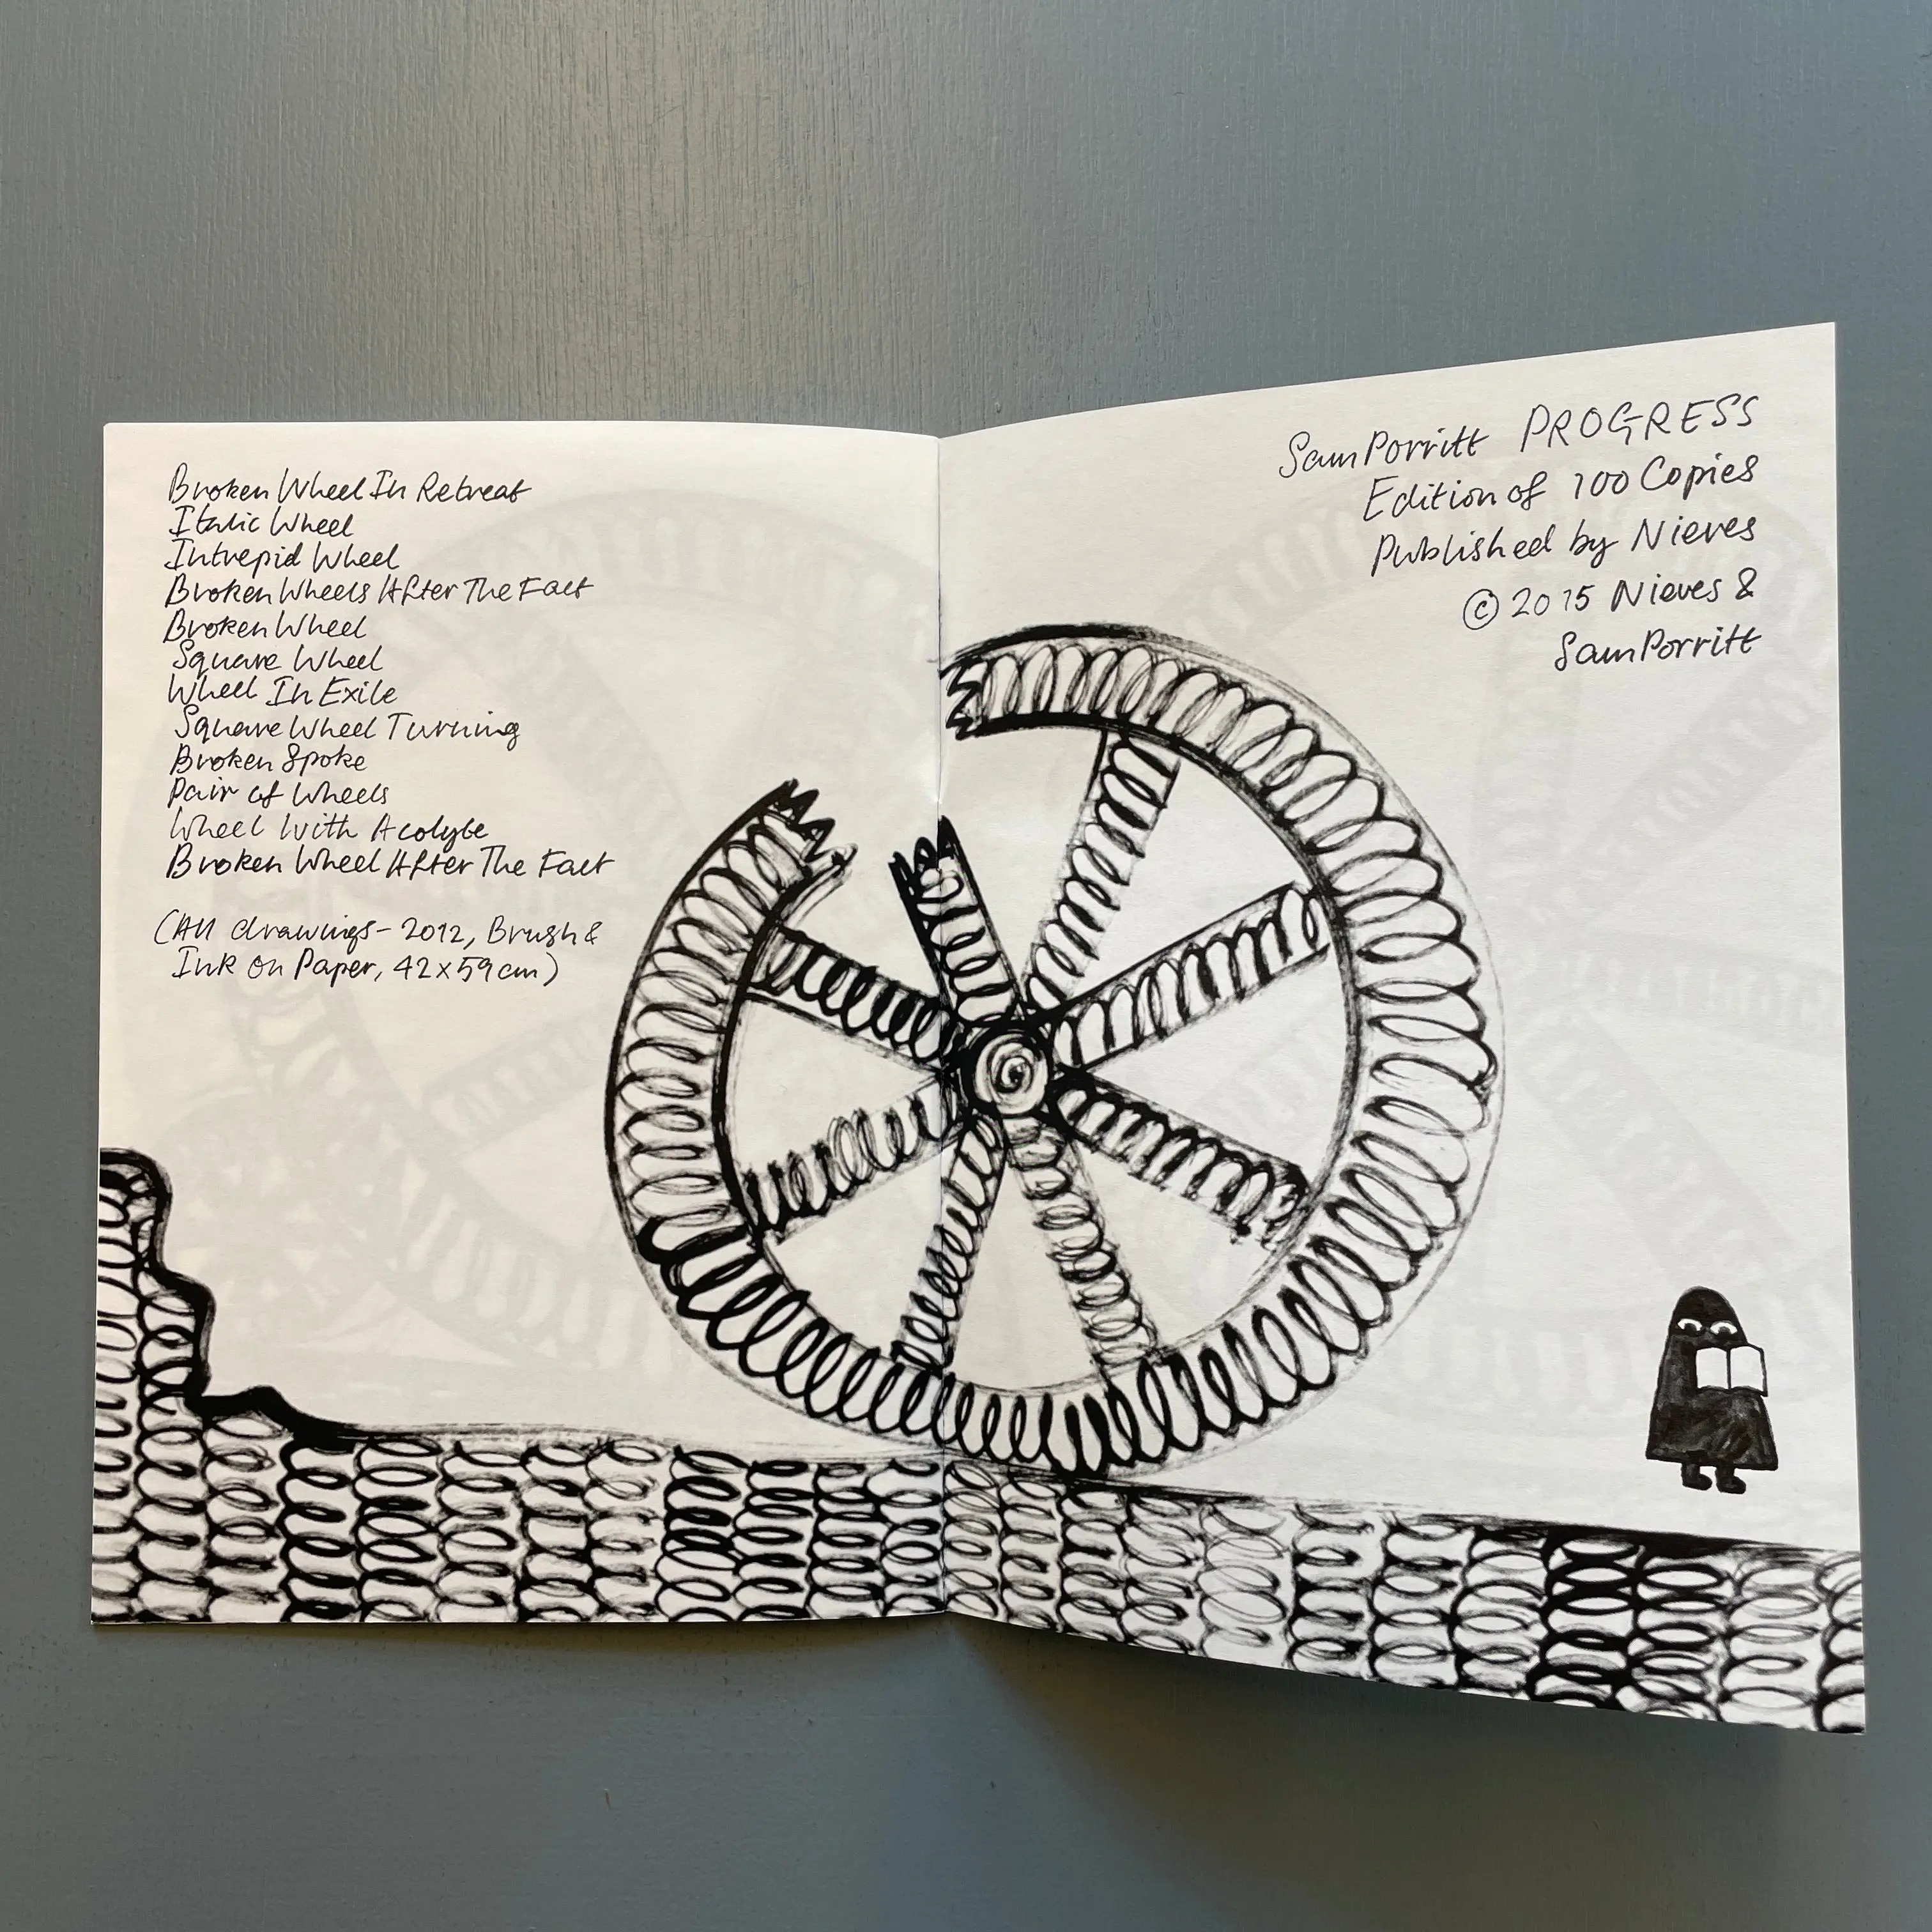 Broken Wheel In Retreat
Italic Wheel
Intrepid Wheel
Broken Wheels After The Fact
Broken Wheel
Square Wheel
Wheel In Exile
Square Wheel Turning
Broken Spoke
Pair of Wheels
Wheel With Acolyte
Broken Wheel After The Fact
(All drawings - 2012, Brush &
Ink on Paper, 42 x 59 cm)
Sam Porritt PROGRESS
Edition of 100 Copies
Published by Nieves
© 2015 Nieves &
Sam Porritt